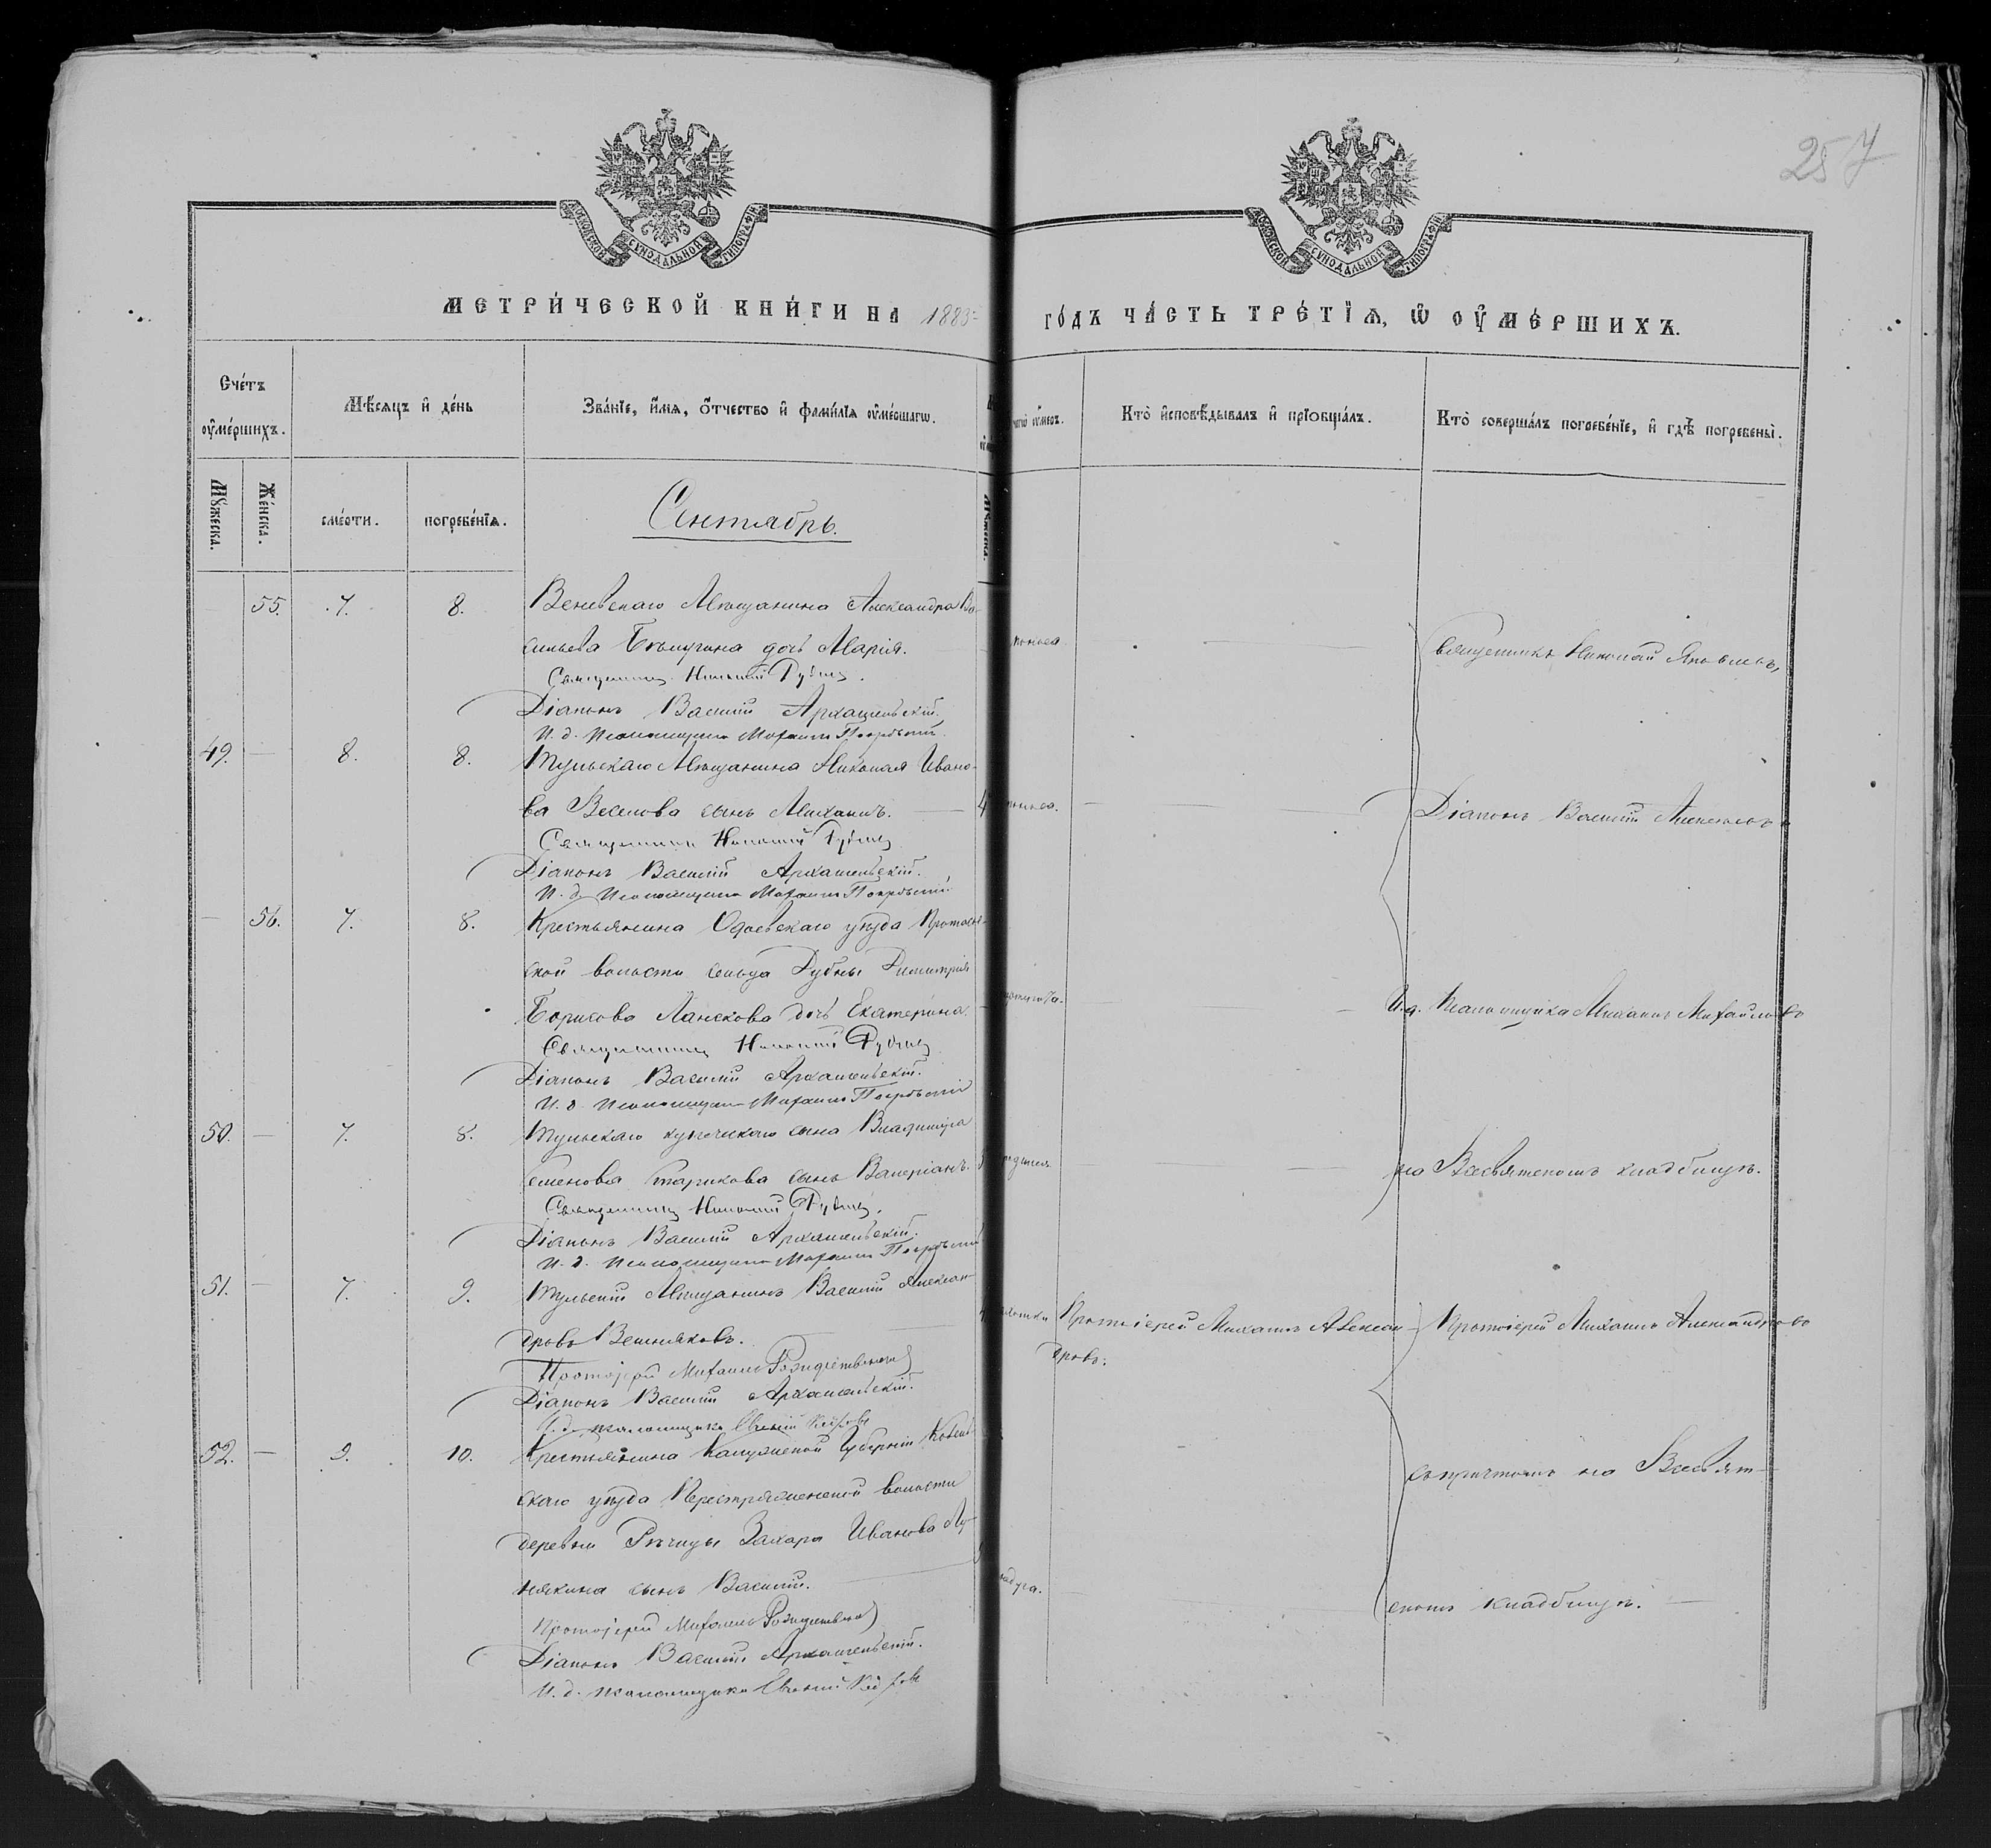 257
МОСКОВСКОЙ СѴНОДАЛЬНОЙ ТИПОГРАФІИ
МОСКОВСКОЙ СѴНОДАЛЬНОЙ ТИПОГРАФІИ
МЕТРИ́ЧЕСКОЙ КНИ́ГИ НА 1883 ГО́ДЪ ЧА́СТЬ ТРЕ́ТІѦ, Ѡ҆ ОУ҆МЕ́РШИХЪ.
Сче́тъ оу҆ме́ршихъ.
Мѣ́сяцъ и҆ де́нь
Зва́нїе, и҆́мѧ, ѻ҆́тчество и҆ фами́лїѧ оу҆ме́ршагѡ.
чегѡ̀ оу҆́меръ.
Кто̀ и҆сповѣ́дывалъ и҆ прїѻбща́лъ.
Кто̀ соверша́лъ погребе́нїе, и҆ гдѣ̀ погребены̀.
Мꙋ́жеска.
Же́нска.
сме́рти.
погребе́нїѧ.
Сентябрь.
55. 7. 8. Веневскаго Мѣщанина Александра Ва-
сильева дочь Марія.
Священникъ Николай Рудневъ.
Діаконъ Василій Архангельскій.
И. д. Псаломщика Михаилъ Покровскій
Священникъ Николай Яковлевъ,
49. — 8. 8. Тульскаго Мѣщанина Николая Ивано-
ва сынъ Михаилъ. 4
Священникъ Николай Рудневъ
Діаконъ Василій Архангельскій.
И. д. Псаломщика Михаилъ Покровскій
Діаконъ Василій Алексѣевъ
— 56. 7. 8. Крестьянина Одоевскаго уѣзда
ской волости сельца Дубны Димитрія
Борисова Ланскова дочь Екатерина.
Священникъ Николай Рудневъ
Діаконъ Василій Архангельскій.
И. д. Псаломщика Михаилъ Покровскій
И. д. Псаломщика Михаилъ Михайловъ
50. — 7. 8. Тульскаго купеческаго сына Владиміра
Семенова сынъ Валеріанъ.
Священникъ Николай Рудневъ.
Діаконъ Василій Архангельскій.
И. д. Псаломщика Михаилъ Покровскій
на Всесвятскомъ кладбищѣ.
51. — 7. 9. Тульскій Мѣщанинъ Василій Алексан-
дровъ Вешняковъ.
Протоіерей Михаилъ Рождественскій
Діаконъ Василій Архангельскій.
И. д. псаломщика Евгеній
Протоіерей Михаилъ Алексан-
дровъ.
Протоіерей Михаилъ Александровъ
52. — 9. 10. Крестьянина Калужской Губерніи Козель-
скаго уѣзда волости
деревни Рѣчицы Захара Иванова Лу-
някина сынъ Василій.
Протоіерей Михаилъ Рождественскій
Діаконъ Василій Архангельскій.
И. д. псаломщика Евгеній
съ причтомъ на Всесвят-
скомъ кладбищѣ.